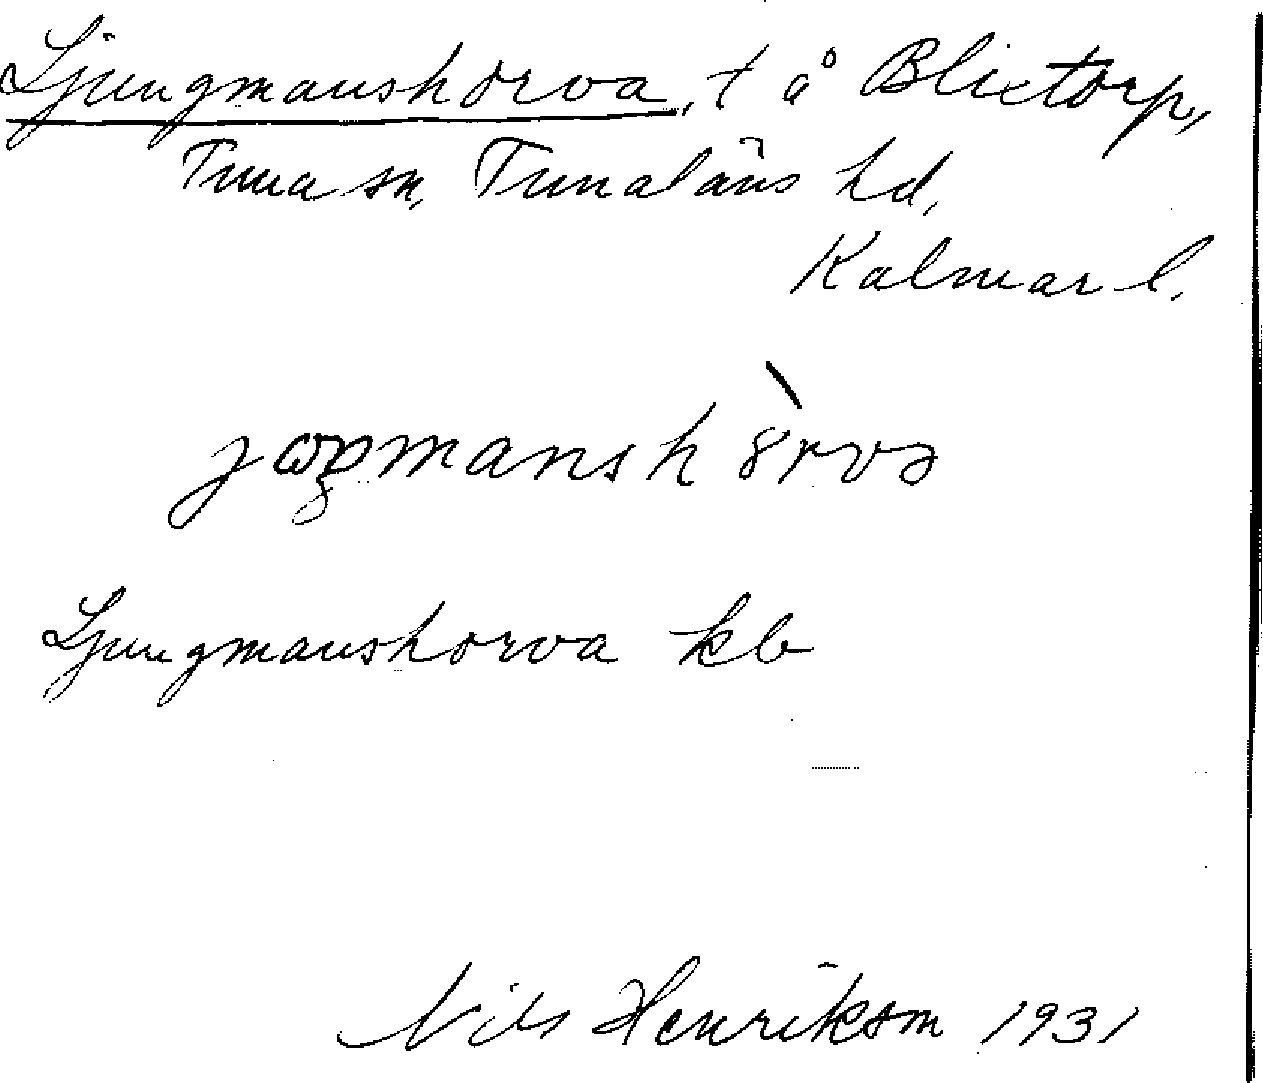 Ljungmanshorva, t å Blixtorp,
Tuna sn, Tunaläns hd,
Kalmar l.
Ljungmanshorva kb
Nils Henriksson 1931